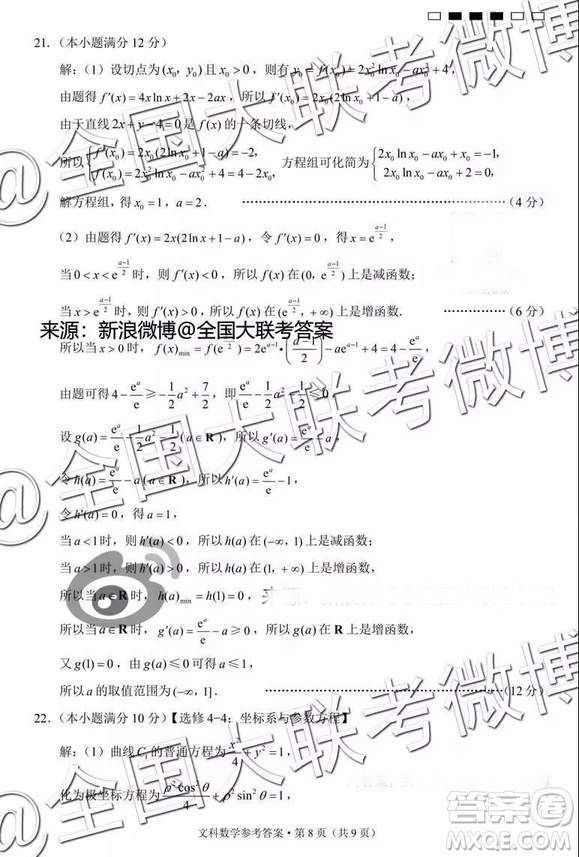 21.（本小题满分 12 分）
解：（1）设切点为(x₀, y₀)且 x₀ > 0，则有 y₀ = f(x₀) = 2x₀² ln x₀ − ax₀² + 4，
由题得 f′(x) = 4x ln x + 2x − 2ax，所以 f′(x₀) = 2x₀(2ln x₀ + 1 − a)，
由于直线 2x + y − 4 = 0 是 f(x) 的一条切线，
所以 { f′(x₀) = 2x₀(2ln x₀ + 1 − a) = −2, f(x₀) = 2x₀² ln x₀ − ax₀² + 4 = 4 − 2x₀, 方程组可化简为 { 2x₀ ln x₀ − ax₀ + x₀ = −1, 2x₀ ln x₀ − ax₀ + 2 = 0,
解方程组，得 x₀ = 1，a = 2．……（4 分）
（2）由题得 f′(x) = 2x(2ln x + 1 − a)，令 f′(x) = 0，得 x = e^((a−1)/2)，
当 0 < x < e^((a−1)/2) 时，则 f′(x) < 0，所以 f(x) 在 (0, e^((a−1)/2)) 上是减函数；
当 x > e^((a−1)/2) 时，则 f′(x) > 0，所以 f(x) 在 (e^((a−1)/2), +∞) 上是增函数．……（6 分）
来源：新浪微博@全国大联考答案
所以当 x > 0 时，f(x)min = f(e^((a−1)/2)) = 2e^(a−1)·((a−1)/2) − ae^(a−1) + 4 = 4 − e^a/e，
由题可得 4 − e^a/e ≥ −1/2 a² + 7/2，即 e^a/e − 1/2 a² − 1/2 ≤ 0，
设 g(a) = e^a/e − 1/2 a² − 1/2 (a∈R)，所以 g′(a) = e^a/e − a，
令 h(a) = e^a/e − a (a∈R)，所以 h′(a) = e^a/e − 1，
令 h′(a) = 0，得 a = 1，
当 a < 1 时，则 h′(a) < 0，所以 h(a) 在 (−∞, 1) 上是减函数；
当 a > 1 时，则 h′(a) > 0，所以 h(a) 在 (1, +∞) 上是增函数；
当 a∈R 时，h(a)min = h(1) = 0，
所以当 a∈R 时，g′(a) = e^a/e − a ≥ 0，所以 g(a) 在 R 上是增函数，
又 g(1) = 0，由 g(a) ≤ 0 可得 a ≤ 1，
所以 a 的取值范围为 (−∞, 1]．……（12 分）
22.（本小题满分 10 分）【选修 4−4：坐标系与参数方程】
解：（1）曲线 C₁ 的普通方程为 x²/4 + y² = 1，
化为极坐标方程为 ρ²cos²θ/4 + ρ²sin²θ = 1，
文科数学参考答案·第 8 页（共 9 页）
@全国大联考微博
@全国大联考微博
@全国大联考微博
作业帮答案
MXEQ.COM